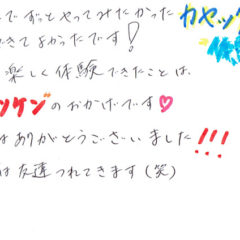 で ずっと やってみたかった カヤック
できて よかったです!
体験
楽しく 体験 できたことは、
ッケンのおかげです♡
はありがとうございました!!!
は友達つれてきます(笑)